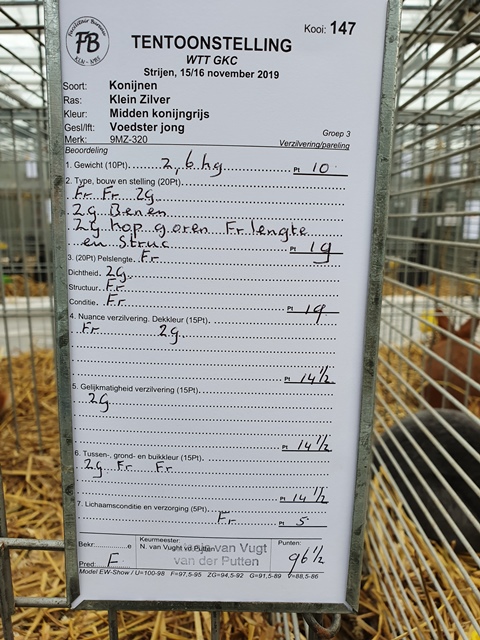 Kooi: 147
FB
KLN - NBS
TENTOONSTELLING
WTT GKC
Strijen, 15/16 november 2019
Soort: Konijnen
Ras: Klein Zilver
Kleur: Midden konijngrijs
Gesl/lft: Voedster jong
Groep 3
Merk: 9MZ-320
Verzilvering/pareling
Beoordeling
1. Gewicht (10Pt) 2,6 kg Pt 10
2. Type, bouw en stelling (20Pt)
Fr Fr ZG
ZG Benen
ZG kop goren Fr lengte
en Struc Pt 19
3. (20Pt) Pelslengte Fr
Dichtheid ZG
Structuur Fr
Conditie Fr Pt 19
4. Nuance verzilvering. Dekkleur (15Pt)
Fr ZG
Pt 14 1/2
5. Gelijkmatigheid verzilvering (15Pt)
ZG
Pt 14 1/2
6. Tussen-, grond- en buikkleur (15Pt)
ZG Fr Fr
Pt 14 1/2
7. Lichaamsconditie en verzorging (5Pt)
Fr Pt 5
Bekr: e Keurmeester: Punten:
N. van Vught vd Putten van Vugt
van der Putten
Pred: F 96 1/2
Model EW-Show / U=100-98 F=97,5-95 ZG=94,5-92 G=91,5-89 V=88,5-86